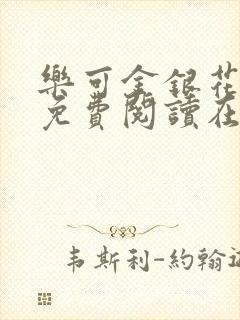 樂可金銀花
免費閱讀在
韦斯利-約翰遜